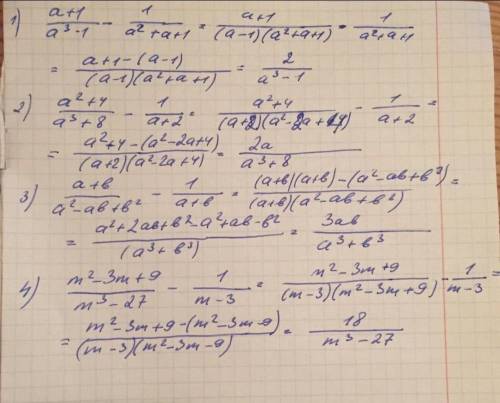 1) (a+1)/(a³-1) - 1/(a²+a+1) = (a+1)/((a-1)(a²+a+1)) - 1/(a²+a+1)
= (a+1-(a-1))/((a-1)(a²+a+1)) = 2/(a³-1)
2) (a²+4)/(a³+8) - 1/(a+2) = (a²+4)/((a+2)(a²-2a+4)) - 1/(a+2) =
= (a²+4-(a²-2a+4))/((a+2)(a²-2a+4)) = 2a/(a³+8)
3) (a+b)/(a²-ab+b²) - 1/(a+b) = ((a+b)(a+b)-(a²-ab+b²))/((a+b)(a²-ab+b²)) =
= (a²+2ab+b²-a²+ab-b²)/(a³+b³) = 3ab/(a³+b³)
4) (m²-3m+9)/(m³-27) - 1/(m-3) = (m²-3m+9)/((m-3)(m²-3m+9)) - 1/(m-3) =
= (m²-3m+9-(m²-3m-9))/((m-3)(m²-3m-9)) = 18/(m³-27)